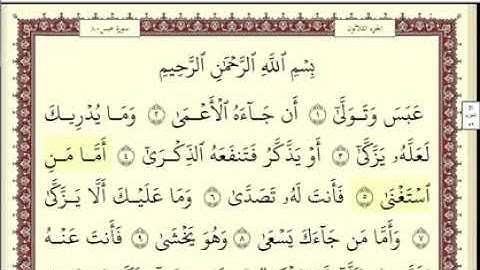 سورة عبس-٨٠
الجزء الثلاثون
بِسْمِ ٱللَّهِ ٱلرَّحْمَٰنِ ٱلرَّحِيمِ
عَبَسَ وَتَوَلَّىٰٓ ۝١ أَن جَآءَهُ ٱلْأَعْمَىٰ ۝٢ وَمَا يُدْرِيكَ
لَعَلَّهُۥ يَزَّكَّىٰٓ ۝٣ أَوْ يَذَّكَّرُ فَتَنفَعَهُ ٱلذِّكْرَىٰٓ ۝٤ أَمَّا مَنِ
ٱسْتَغْنَىٰ ۝٥ فَأَنتَ لَهُۥ تَصَدَّىٰ ۝٦ وَمَا عَلَيْكَ أَلَّا يَزَّكَّىٰ
۝٧ وَأَمَّا مَن جَآءَكَ يَسْعَىٰ ۝٨ وَهُوَ يَخْشَىٰ ۝٩ فَأَنتَ عَنْهُ